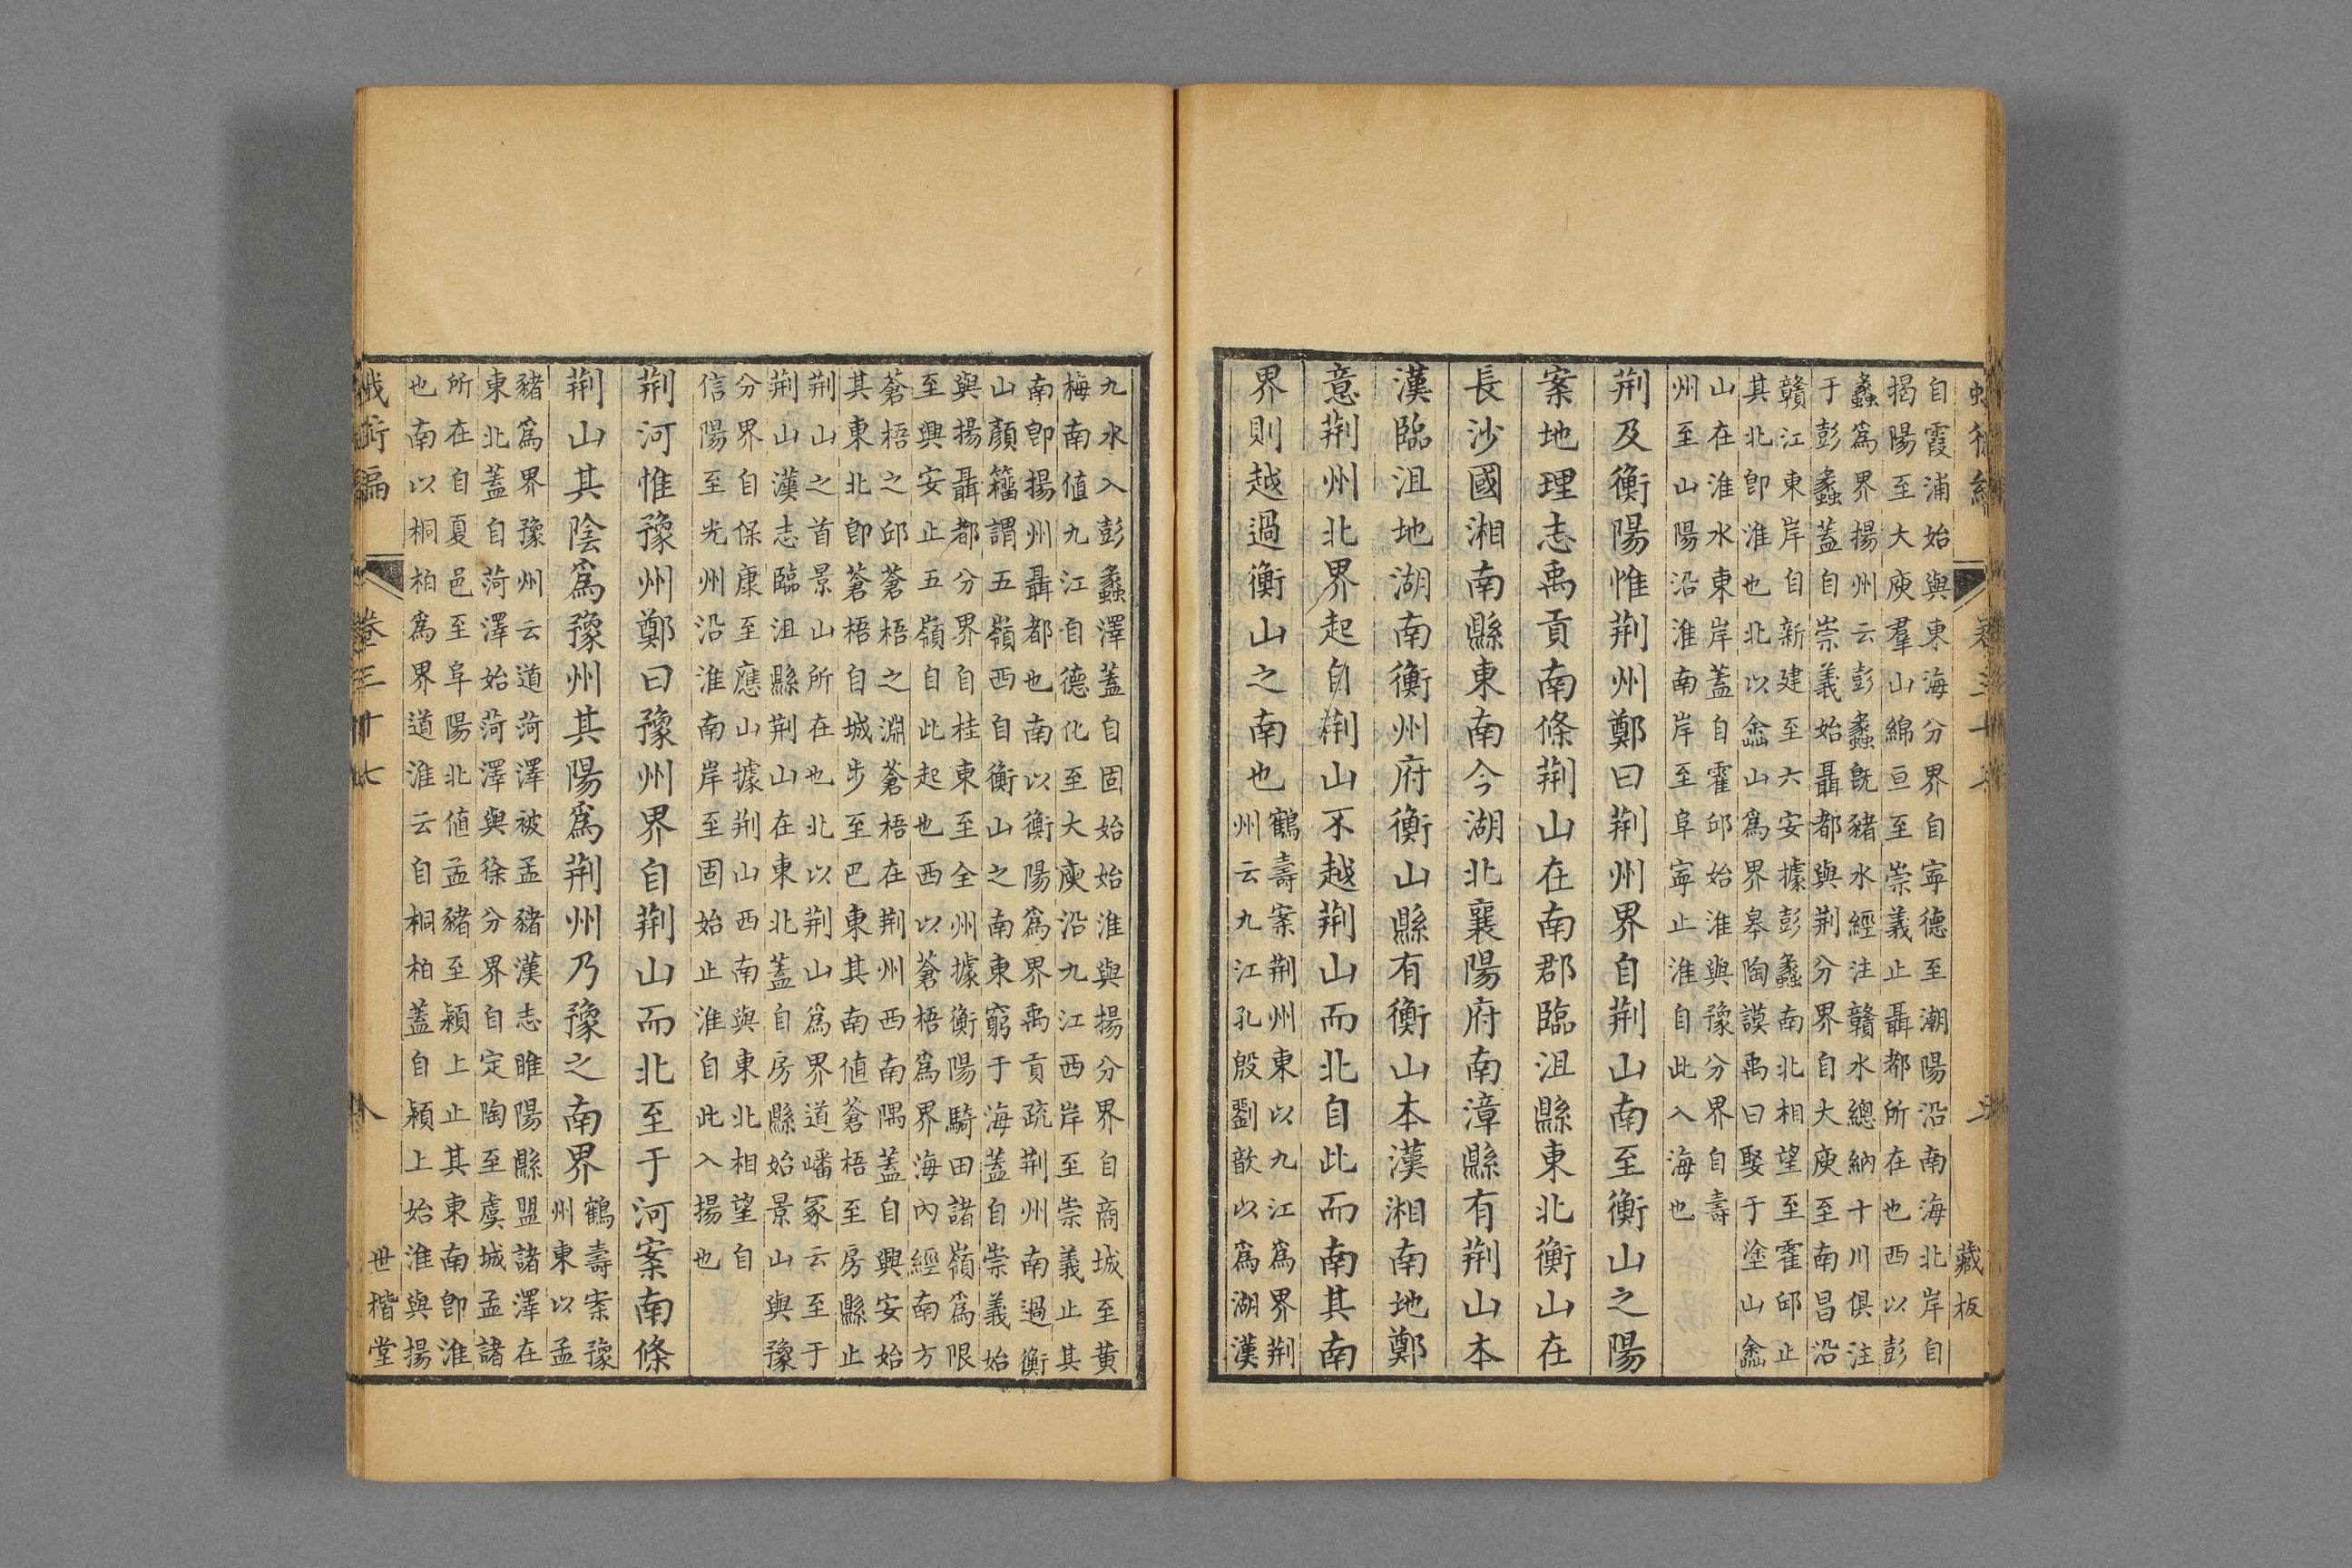 藏板
自霞浦始與東海分界自寧德至潮陽沿南海北岸自
揭陽至大庾羣山綿亘至崇義止聶都所在也西以彭
蠡爲界揚州云彭蠡旣豬水經注贛水總納十川俱注
于彭蠡蓋自崇義始聶都與荆分界自大庾至南昌沿
贛江東岸自新建至六安據彭蠡南北相望至霍邱止
其北卽淮也北以嵞山爲界皋陶謨禹曰娶于塗山嵞
山在淮水東岸蓋自霍邱始淮與豫分界自壽
州至山陽沿淮南岸至阜寧止淮自此入海也
荆及衡陽惟荆州鄭曰荆州界自荆山南至衡山之陽
案地理志禹貢南條荆山在南郡臨沮縣東北衡山在
長沙國湘南縣東南今湖北襄陽府南漳縣有荆山本
漢臨沮地湖南衡州府衡山縣有衡山本漢湘南地鄭
意荆州北界起自荆山不越荆山而北自此而南其南
界則越過衡山之南也
鶴壽案荆州東以九江爲界荆
州云九江孔殷劉歆以爲湖漢
九水入彭蠡澤蓋自固始始淮與揚分界自商城至黃
梅南值九江自德化至大庾沿九江西岸至崇義止其
南卽揚州聶都也南以衡陽爲界禹貢疏荆州南過衡
山顏籀謂五嶺西自衡山之南東窮于海蓋自崇義始
與揚聶都分界自桂東至全州據衡陽騎田諸嶺爲限
至興安止五嶺自此起也西以蒼梧爲界海內經南方
蒼梧之邱蒼梧之淵蒼梧在荆州西南隅蓋自興安始
其東北卽蒼梧自城步至巴東其南值蒼梧至房縣止
荆山之首景山所在也北以荆山爲界道嶓冢云至于
荆山漢志臨沮縣荆山在東北蓋自房縣始景山與豫
分界自保康至應山據荆山西南與東北相望自
信陽至光州沿淮南岸至固始止淮自此入揚也
荆河惟豫州鄭曰豫州界自荆山而北至于河案南條
荆山其陰爲豫州其陽爲荆州乃豫之南界
鶴壽案豫
州東以孟
豬爲界豫州云道菏澤被孟豬漢志睢陽縣盟諸澤在
東北蓋自菏澤始菏澤與徐分界自定陶至虞城孟諸
所在自夏邑至阜陽北值孟豬至潁上止其東南卽淮
也南以桐柏爲界道淮云自桐柏蓋自潁上始淮與揚
世楷堂